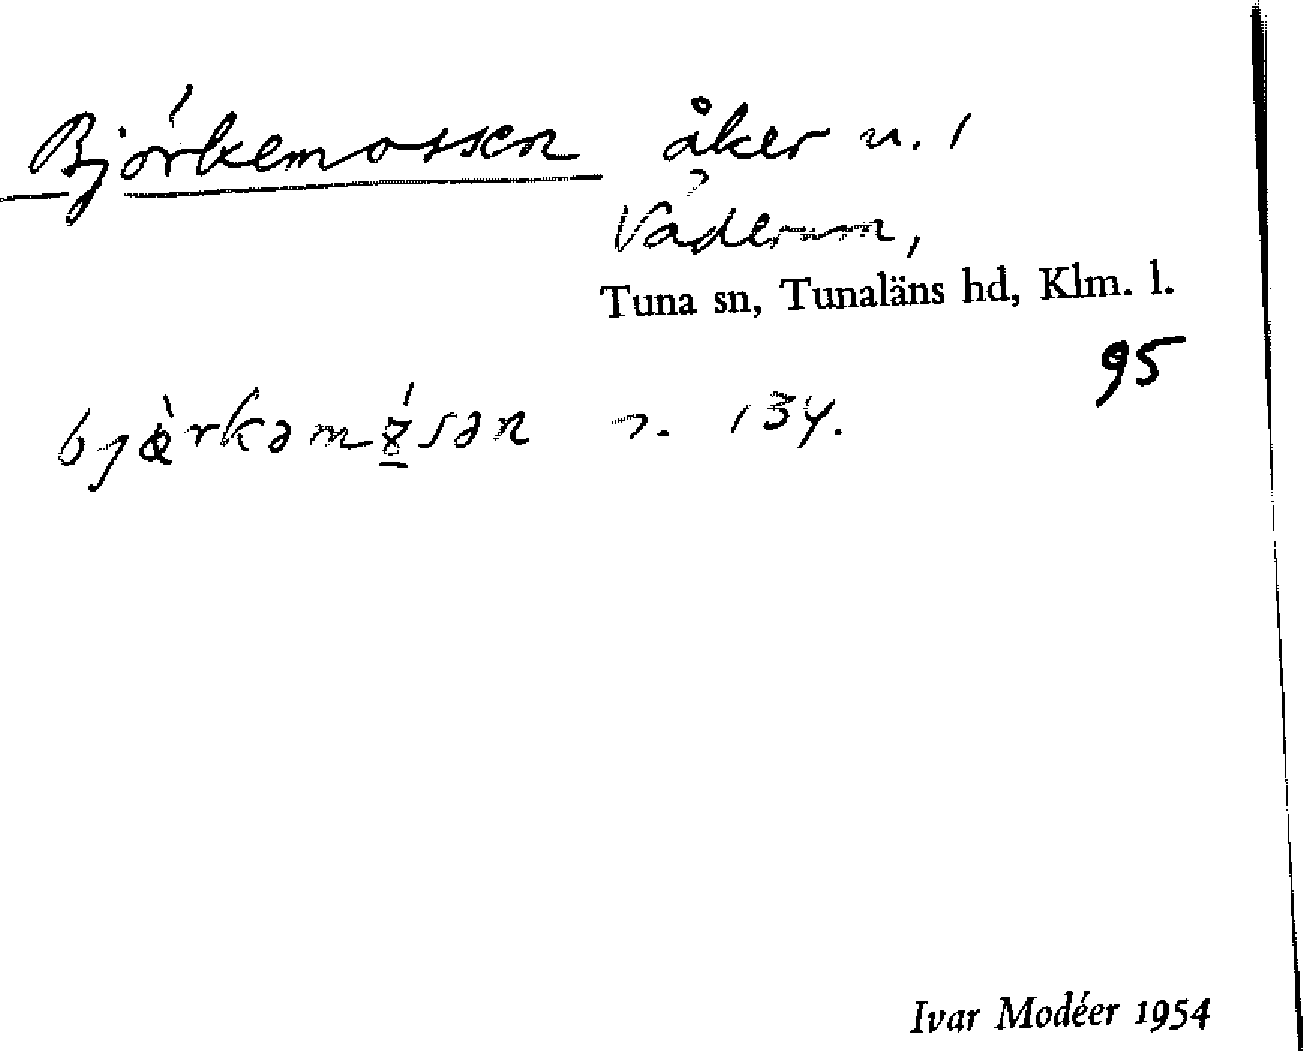 Björkemossen åker n. 1
Väderum,
Tuna sn, Tunaläns hd, Klm. l.
95
n. 134.
Ivar Modéer 1954